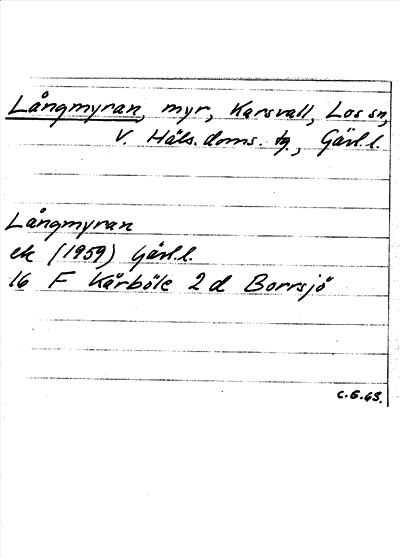 Långmyran, myr, Karsvall, Los sn,
V. Häls. doms. tg., Gävl.l.
Långmyran
ek (1959) Gävl.l.
16 F Kårböle 2 d Borrsjö
C.G.63.